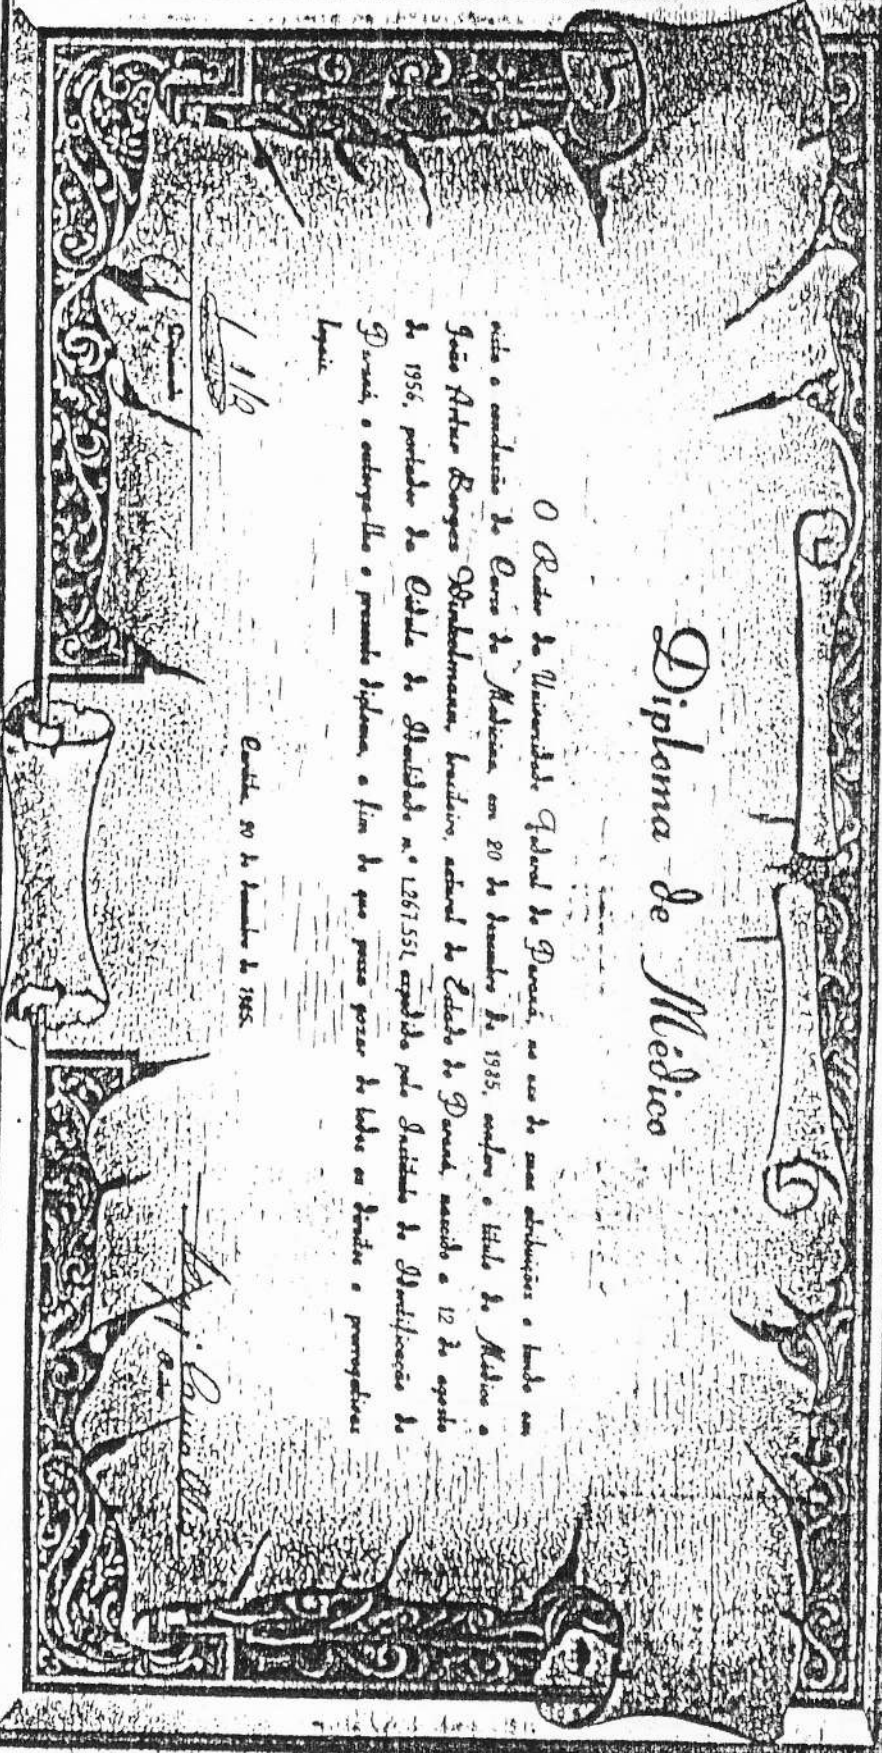 Diploma de Médico
O Reitor da Universidade Federal do Paraná, no uso de suas atribuições e tendo em
vista a conclusão do Curso de Medicina, em 20 de dezembro de 1985, confere o título de Médico a
João Artur Borges Winkelmann, brasileiro, natural do Estado do Paraná, nascido a 12 de agosto
de 1956, portador da Cédula de Identidade n.º 1.267.551, expedida pelo Instituto de Identificação do
Paraná, e outorga-lhe o presente diploma, a fim de que possa gozar de todos os direitos e prerrogativas
legais.
Curitiba, 20 de dezembro de 1985.
Reitor